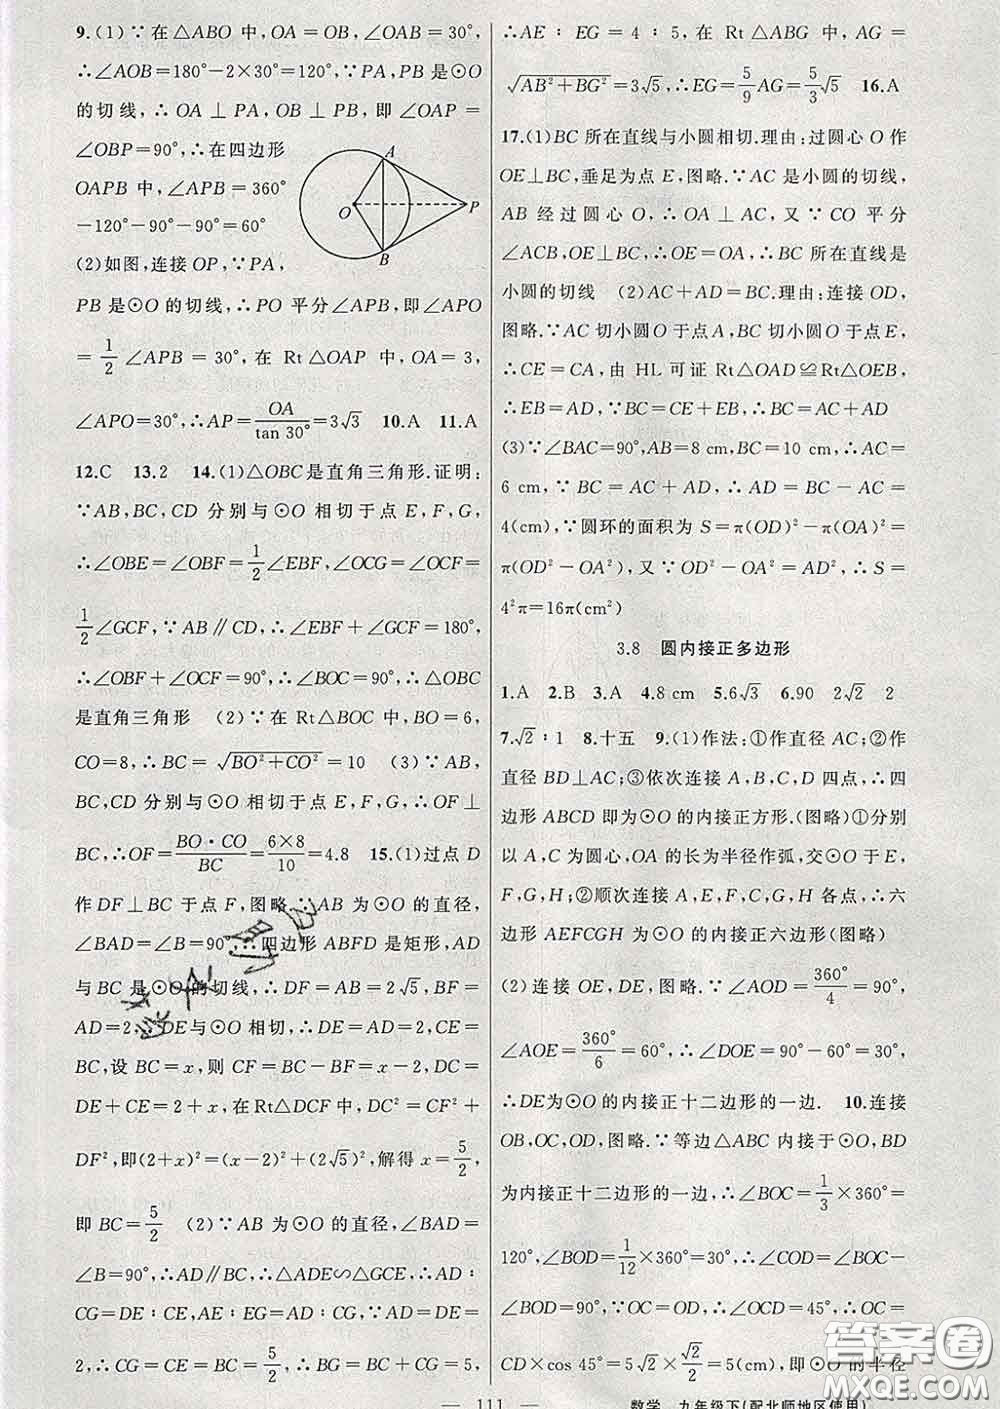 9.(1)∵在△ABO中,OA=OB,∠OAB=30°,
∴∠AOB=180°-2×30°=120°,∵PA,PB是⊙O
的切线,∴OA⊥PA,OB⊥PB,即∠OAP=
∠OBP=90°,∴在四边形
OAPB中,∠APB=360°
-120°-90°-90°=60°
(2)如图,连接OP,∵PA,
A
O
P
B
PB是⊙O的切线,∴PO平分∠APB,即∠APO
=1/2∠APB=30°,在Rt△OAP中,OA=3,
∠APO=30°,∴AP=OA/tan 30°=3√3 10.A 11.A
12.C 13.2 14.(1)△OBC是直角三角形.证明:
∵AB,BC,CD分别与⊙O相切于点E,F,G,
∴∠OBE=∠OBF=1/2∠EBF,∠OCG=∠OCF=
1/2∠GCF,∵AB∥CD,∴∠EBF+∠GCF=180°,
∴∠OBF+∠OCF=90°,∴∠BOC=90°,∴△OBC
是直角三角形 (2)∵在Rt△BOC中,BO=6,
CO=8,∴BC=√(BO²+CO²)=10 (3)∵AB,
BC,CD分别与⊙O相切于点E,F,G,∴OF⊥
BC,∴OF=BO·CO/BC=6×8/10=4.8 15.(1)过点D
作DF⊥BC于点F,图略.∵AB为⊙O的直径,
∠BAD=∠B=90°,∴四边形ABFD是矩形,AD
与BC是⊙O的切线,∴DF=AB=2√5,BF=
AD=2,∵DE与⊙O相切,∴DE=AD=2,CE=
BC,设BC=x,则CF=BC-BF=x-2,DC=
DE+CE=2+x,在Rt△DCF中,DC²=CF²+
DF²,即(2+x)²=(x-2)²+(2√5)²,解得x=5/2,
即BC=5/2 (2)∵AB为⊙O的直径,∠BAD=
∠B=90°,∴AD∥BC,∴△ADE∽△GCE,∴AD:
CG=DE:CE,AE:EG=AD:CG,∵AD=DE=
2,∴CG=CE=BC=5/2,∴BG=BC+CG=5,
∴AE:EG=4:5,在Rt△ABG中,AG=
√(AB²+BG²)=3√5,∴EG=5/9AG=5/3√5 16.A
17.(1)BC所在直线与小圆相切.理由:过圆心O作
OE⊥BC,垂足为点E,图略.∵AC是小圆的切线,
AB经过圆心O,∴OA⊥AC,又∵CO平分
∠ACB,OE⊥BC,∴OE=OA,∴BC所在直线是
小圆的切线 (2)AC+AD=BC.理由:连接OD,
图略.∵AC切小圆O于点A,BC切小圆O于点E,
∴CE=CA,由HL可证Rt△OAD≌Rt△OEB,
∴EB=AD,∵BC=CE+EB,∴BC=AC+AD
(3)∵∠BAC=90°,AB=8 cm,BC=10 cm,∴AC=
6 cm,∵BC=AC+AD,∴AD=BC-AC=
4(cm),∵圆环的面积为S=π(OD)²-π(OA)²=
π(OD²-OA²),又∵OD²-OA²=AD²,∴S=
4²π=16π(cm²)
3.8 圆内接正多边形
1.A 2.B 3.A 4.8 cm 5.6√3 6.90 2√2 2
7.√2:1 8.十五 9.(1)作法:①作直径AC;②作
直径BD⊥AC;③依次连接A,B,C,D四点,∴四
边形ABCD即为⊙O的内接正方形.(图略)①分别
以A,C为圆心,OA的长为半径作弧,交⊙O于E,
F,G,H;②顺次连接A,E,F,C,G,H各点,∴六
边形AEFCGH为⊙O的内接正六边形(图略)
(2)连接OE,DE,图略.∵∠AOD=360°/4=90°,
∠AOE=360°/6=60°,∴∠DOE=90°-60°=30°,
∴DE为⊙O的内接正十二边形的一边. 10.连接
OB,OC,OD,图略.∵等边△ABC内接于⊙O,BD
为内接正十二边形的一边,∴∠BOC=1/3×360°=
120°,∠BOD=1/12×360°=30°,∴∠COD=∠BOC-
∠BOD=90°,∵OC=OD,∴∠OCD=45°,∴OC=
CD×cos 45°=5√2×√2/2=5(cm),即⊙O的半径
— 111 —
数学 九年级下(配北师地区使用)
答案圈
MXQE.COM